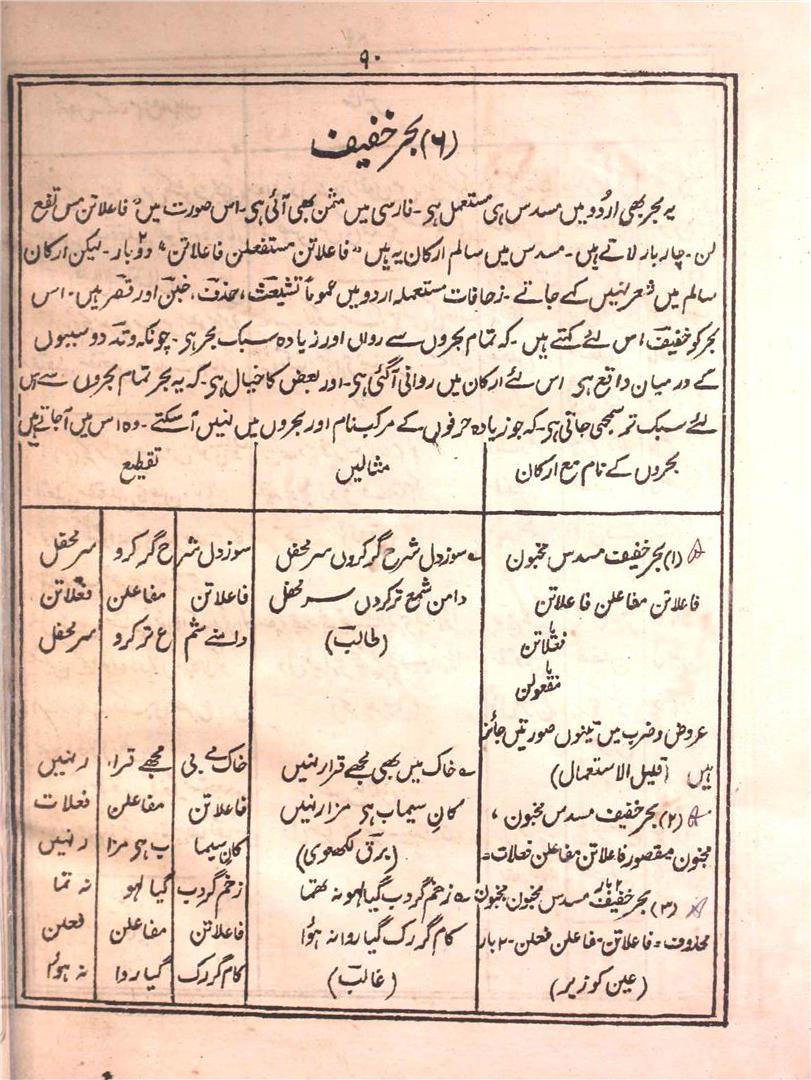 ۹۰
(۶) بحر خفیف
یہ بحر بھی اردُو میں مسدس ہی مستعمل ہی۔ فارسی میں مثمن بھی آئی ہی۔ اس صورت میں "فاعلاتن مس تفع
لن۔ چار بار لاتے ہیں۔ مسدس میں سالم ارکان یہ ہیں "فاعلاتن مستفعلن فاعلاتن" دو۲ بار۔ لیکن ارکان
سالم میں شعر نہیں کہے جاتے۔ زحافات مستعملہ اردو میں عموماً تشیعث، حذف، خبن اور قصر ہیں۔ اس
بحر کو خفیف اس لئے کہتے ہیں۔ کہ تمام بحروں سے رواں اور زیادہ سبک بحر ہی۔ چونکہ وتد دو سببوں
کے درمیان واقع ہی اس لئے ارکان میں روانی آگئی ہی۔ اور بعض کا خیال ہی۔ کہ یہ بحر تمام بحروں سے اس
لئے سبک تر سمجھی جاتی ہی۔ کہ جو زیادہ حرفوں کے مرکب نام اور بحروں میں نہیں آسکتے۔ وہ اس میں آجاتے ہیں
بحروں کے نام مع ارکان مثالیں تقطیع
(۱) بحر خفیف مسدس مخبون ؎ سوز دل شرح گر کروں سر محفل سوز دل شر ح گر کرو سر محفل
فاعلاتن مفاعلن فاعلاتن دامن شمع تر کردں سر محفل فاعلاتن مفاعلن فعلاتن
یا
فعلاتن (طالب) دامنے شم ع تر کرو سر محفل
یا
مفعولن
عروض و ضرب میں تینوں صورتیں جائز
ہیں (قلیل الاستعمال) ؎ خاک میں بھی مجھے قرار نہیں خاک مے بی مجھے قرا، ر نہیں
(۲) بحر خفیف مسدس مخبون، کانِ سیماب ہی مزار نہیں فاعلاتن مفاعلن فعلات
مخبون مقصور فاعلاتن مفاعلن فعلات= (برق لکھنوی) کانِ سیما ب ہی مزا ر نہیں
۲ بار
(۳) بحر خفیف مسدس مخبون مخبون ؎ زخم گر دب گیا لہو نہ تھما زخم گر دب گیا لہو نہ تما
محذوف= فاعلاتن۔ فاعلن فعلن۔ ۲ بار کام گر رک گیا روا نہ ہوُا فاعلاتن مفاعلن فعلن
(عین کو زیر) (غالب) کام گر رک گیا روا نہ ہوُا